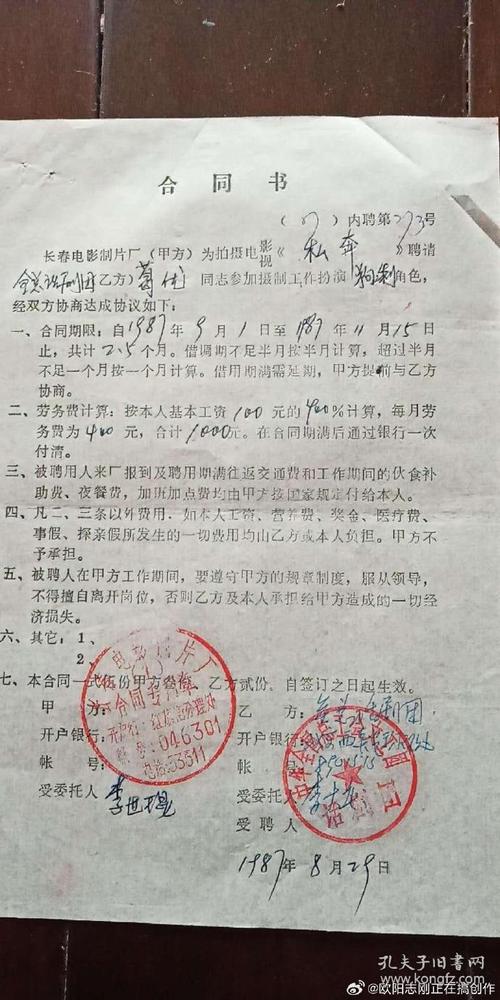 合同书
(87)内聘第273号
长春电影制片厂(甲方)为拍摄电影视《私奔》聘请
全总话剧团(乙方)葛优同志参加摄制工作扮演狗剩角色,
经双方协商达成协议如下:
一、合同期限:自1987年9月1日至1987年11月15日
止,共计2.5个月。借调期不足半月按半月计算,超过半月
不足一个月按一个月计算。借用期满需延期,甲方提前与乙方
协商。
二、劳务费计算:按本人基本工资100元的400%计算,每月劳
务费为400元,合计1000元。在合同期满后通过银行一次
付清。
三、被聘用人来厂报到及聘用期满往返交通费和工作期间的伙食补
助费、夜餐费,加班加点费均由甲方按国家规定付给本人。
四、凡二、三条以外费用,如本人工资、营养费、奖金、医疗费、
事假、探亲假所发生的一切费用均由乙方或本人负担。甲方不
予承担。
五、被聘人在甲方工作期间,要遵守甲方的规章制度,服从领导,
不得擅自离开岗位,否则乙方及本人承担给甲方造成的一切经
济损失。
六、其它:1、
2、
七、本合同一式伍份甲方叁份,乙方贰份,自签订之日起生效。
甲方: 乙方:
开户银行: 开户银行:
帐号: 帐号:
受委托人 受委托人
受聘人
电影制片厂
合同专用章
046301
电话:53311
1987年8月29日
孔夫子旧书网
www.kongfz.com
@欧阳志刚正在搞创作